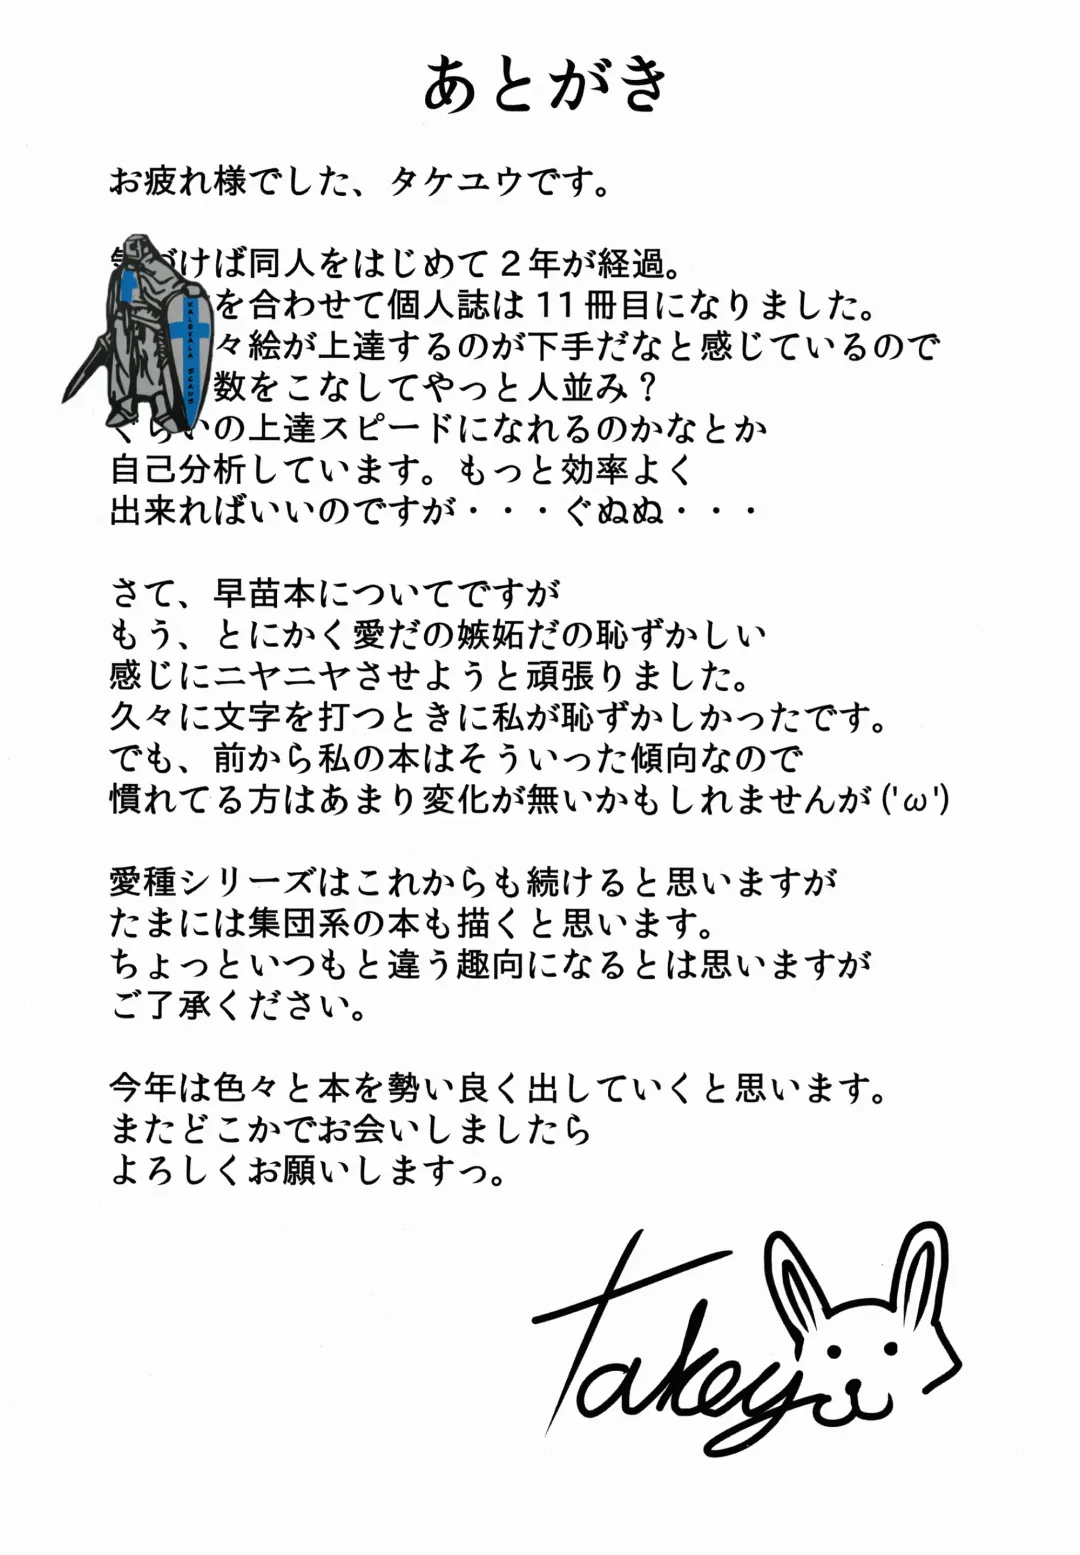 あとがき
お疲れ様でした、タケユウです。
づけば同人をはじめて２年が経過。
を合わせて個人誌は11冊目になりました。
々絵が上達するのが下手だなと感じているので
数をこなしてやっと人並み？
ぐらいの上達スピードになれるのかなとか
自己分析しています。もっと効率よく
出来ればいいのですが・・・ぐぬぬ・・・
さて、早苗本についてですが
もう、とにかく愛だの嫉妬だの恥ずかしい
感じにニヤニヤさせようと頑張りました。
久々に文字を打つときに私が恥ずかしかったです。
でも、前から私の本はそういった傾向なので
慣れてる方はあまり変化が無いかもしれませんが('ω')
愛種シリーズはこれからも続けると思いますが
たまには集団系の本も描くと思います。
ちょっといつもと違う趣向になるとは思いますが
ご了承ください。
今年は色々と本を勢い良く出していくと思います。
またどこかでお会いしましたら
よろしくお願いしますっ。
KALEVALA SCANS
Takeyu